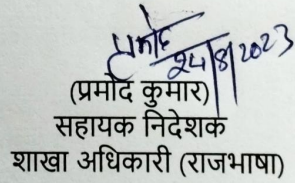 प्रमोद
24/8/2023
(प्रमोद कुमार)
सहायक निदेशक
शाखा अधिकारी (राजभाषा)